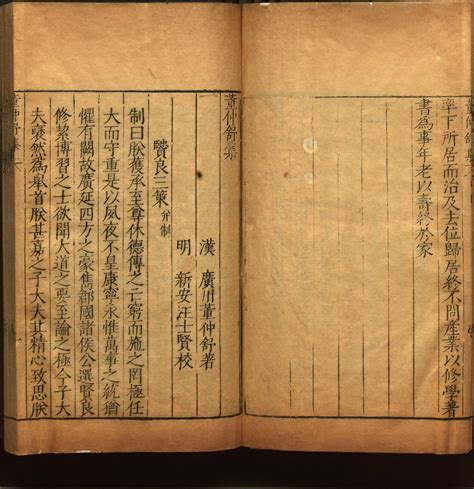 率下所居而治及去位歸居終不問產業以修學著
書為事年老以壽終於家
董仲舒集
漢 廣川董仲舒著
明 新安汪士賢校
賢良三策
制曰朕獲承至尊休德傳之亡窮而施之罔極任
大而守重是以夙夜不皇康寧永惟萬事之統猶
懼有闕故廣延四方之豪雋郡國諸侯公選賢良
修絜博習之士欲聞大道之要至論之極今子大
夫褎然為舉首朕甚嘉之子大夫其精心致思朕
董仲舒集